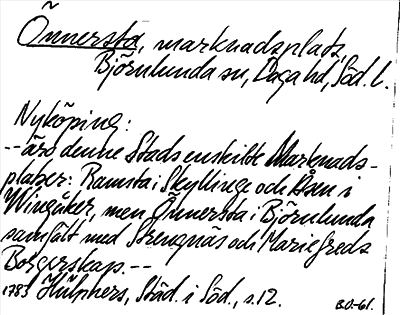 Önnersta, marknadsplats,
Björnlunda sn, Daga hd, Söd. l.
Nyköping:
-- äro denne Stads enskilte Marknads-
platser: Ramsta i Skyllinge och Åsen i
Wingåker, men Önnersta i Björnlunda
samfält med Strengnäs och Mariefreds
Borgerskap. --
1783 Hülphers, Städ. i Söd., s. 12.
B.O-61.